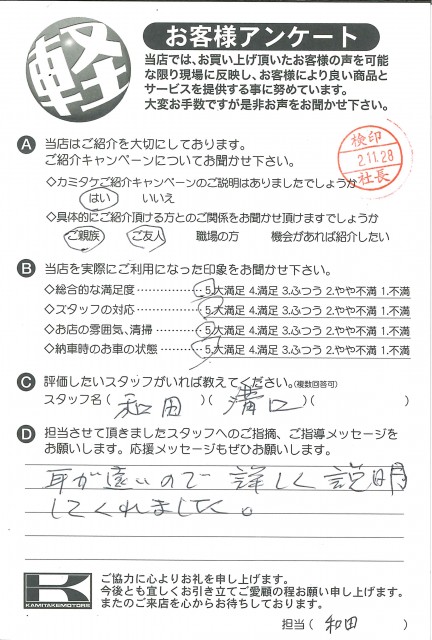 軽
お客様アンケート
当店では、お買い上げ頂いたお客様の声を可能
な限り現場に反映し、お客様により良い商品と
サービスを提供する事に努めています。
大変お手数ですが是非お声をお聞かせ下さい。
A 当店はご紹介を大切にしております。
ご紹介キャンペーンについてお聞かせ下さい。
検印
2.11.28
社長
◇カミタケご紹介キャンペーンのご説明はありましたでしょうか
はい いいえ
◇具体的にご紹介頂ける方とのご関係をお聞かせ頂けますでしょうか
ご親族 ご友人 職場の方 機会があれば紹介したい
B 当店を実際にご利用になった印象をお聞かせ下さい。
◇総合的な満足度……………… 5.大満足 4.満足 3.ふつう 2.やや不満 1.不満
◇スタッフの対応……………… 5.大満足 4.満足 3.ふつう 2.やや不満 1.不満
◇お店の雰囲気、清掃………… 5.大満足 4.満足 3.ふつう 2.やや不満 1.不満
◇納車時のお車の状態………… 5.大満足 4.満足 3.ふつう 2.やや不満 1.不満
C 評価したいスタッフがいれば教えてください。(複数回答可)
スタッフ名( 和田 )( 溝口 )( )
D 担当させて頂きましたスタッフへのご指摘、ご指導メッセージを
お願いします。応援メッセージもぜひお願いします。
耳が遠いので 詳しく 説明
してくれました。
K
KAMITAKEMOTORS
ご協力に心よりお礼を申し上げます。
今後とも宜しくお引き立てご愛顧の程お願い申し上げます。
またのご来店を心からお待ちしております。
担当( 和田 )